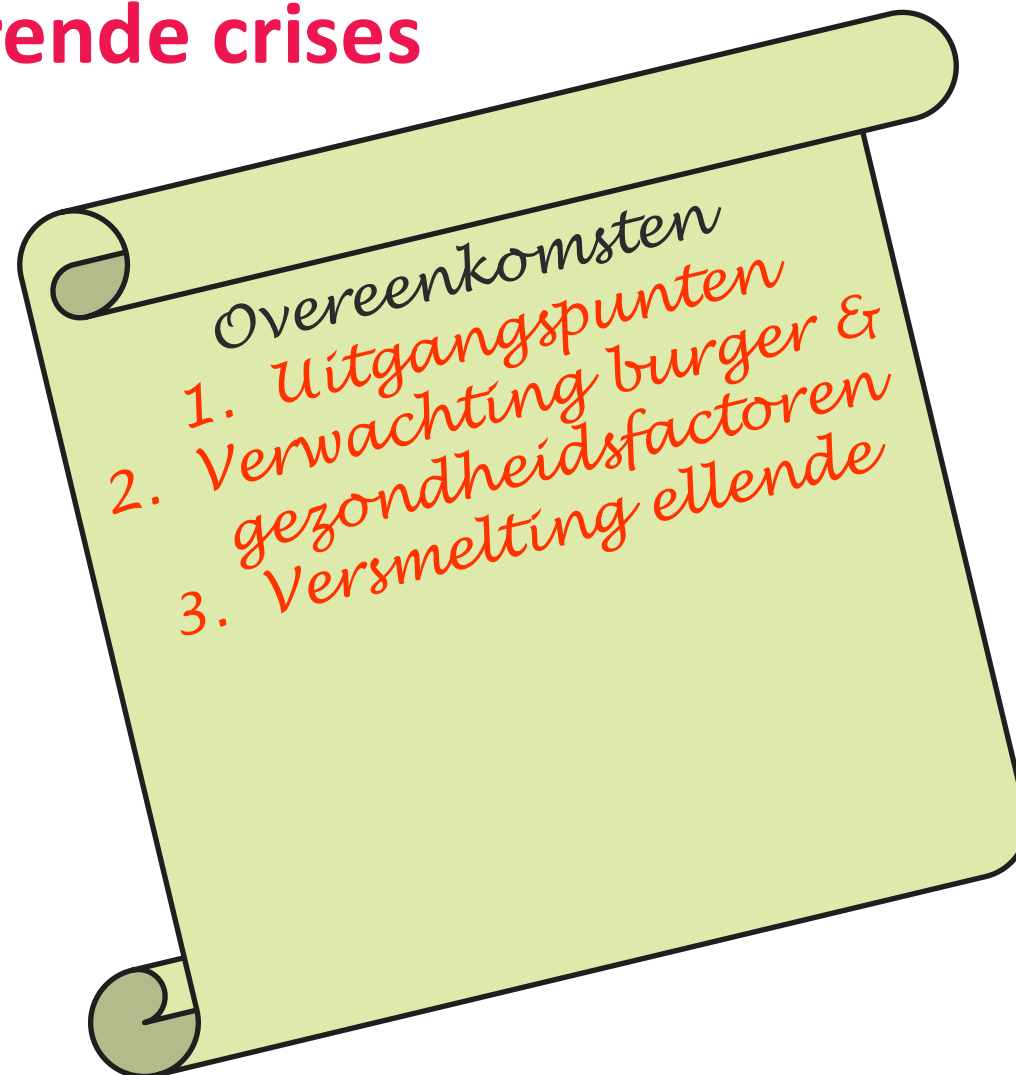 rende crises
Overeenkomsten
1. Uitgangspunten
2. Verwachting burger &
gezondheidsfactoren
3. Versmelting ellende